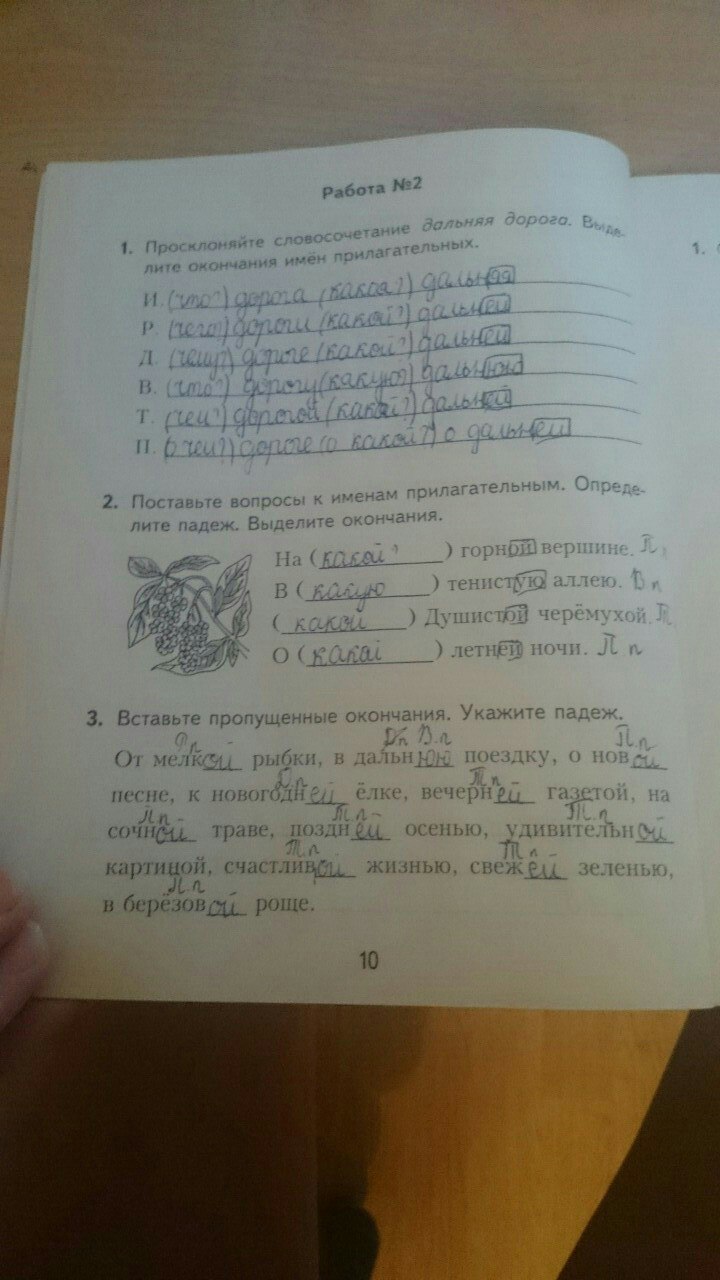 Работа №2
1. Просклоняйте словосочетание дальняя дорога. Выде-
лите окончания имён прилагательных.
И. (что?) дорога (какая?) дальняя
Р. (чего?) дороги (какой?) дальней
Д. (чему?) дороге (какой?) дальней
В. (что?) дорогу (какую?) дальнюю
Т. (чем?) дорогой (какой?) дальней
П. (о чем?) дороге (о какой?) о дальней
2. Поставьте вопросы к именам прилагательным. Опреде-
лите падеж. Выделите окончания.
На (какой?) горной вершине. П
В (какую) тенистую аллею. В п
(какой) Душистой черёмухой. Т
О (какай) летней ночи. П п
3. Вставьте пропущенные окончания. Укажите падеж.
В.п П.п
От мелкой рыбки, в дальнюю поездку, о новой
Д п Т п
песне, к новогодней ёлке, вечерней газетой, на
П п Т п Т. п
сочной траве, поздней осенью, удивительной
Т. п Т п
картиной, счастливой жизнью, свежей зеленью,
П. п
в берёзовой роще.
10
1.